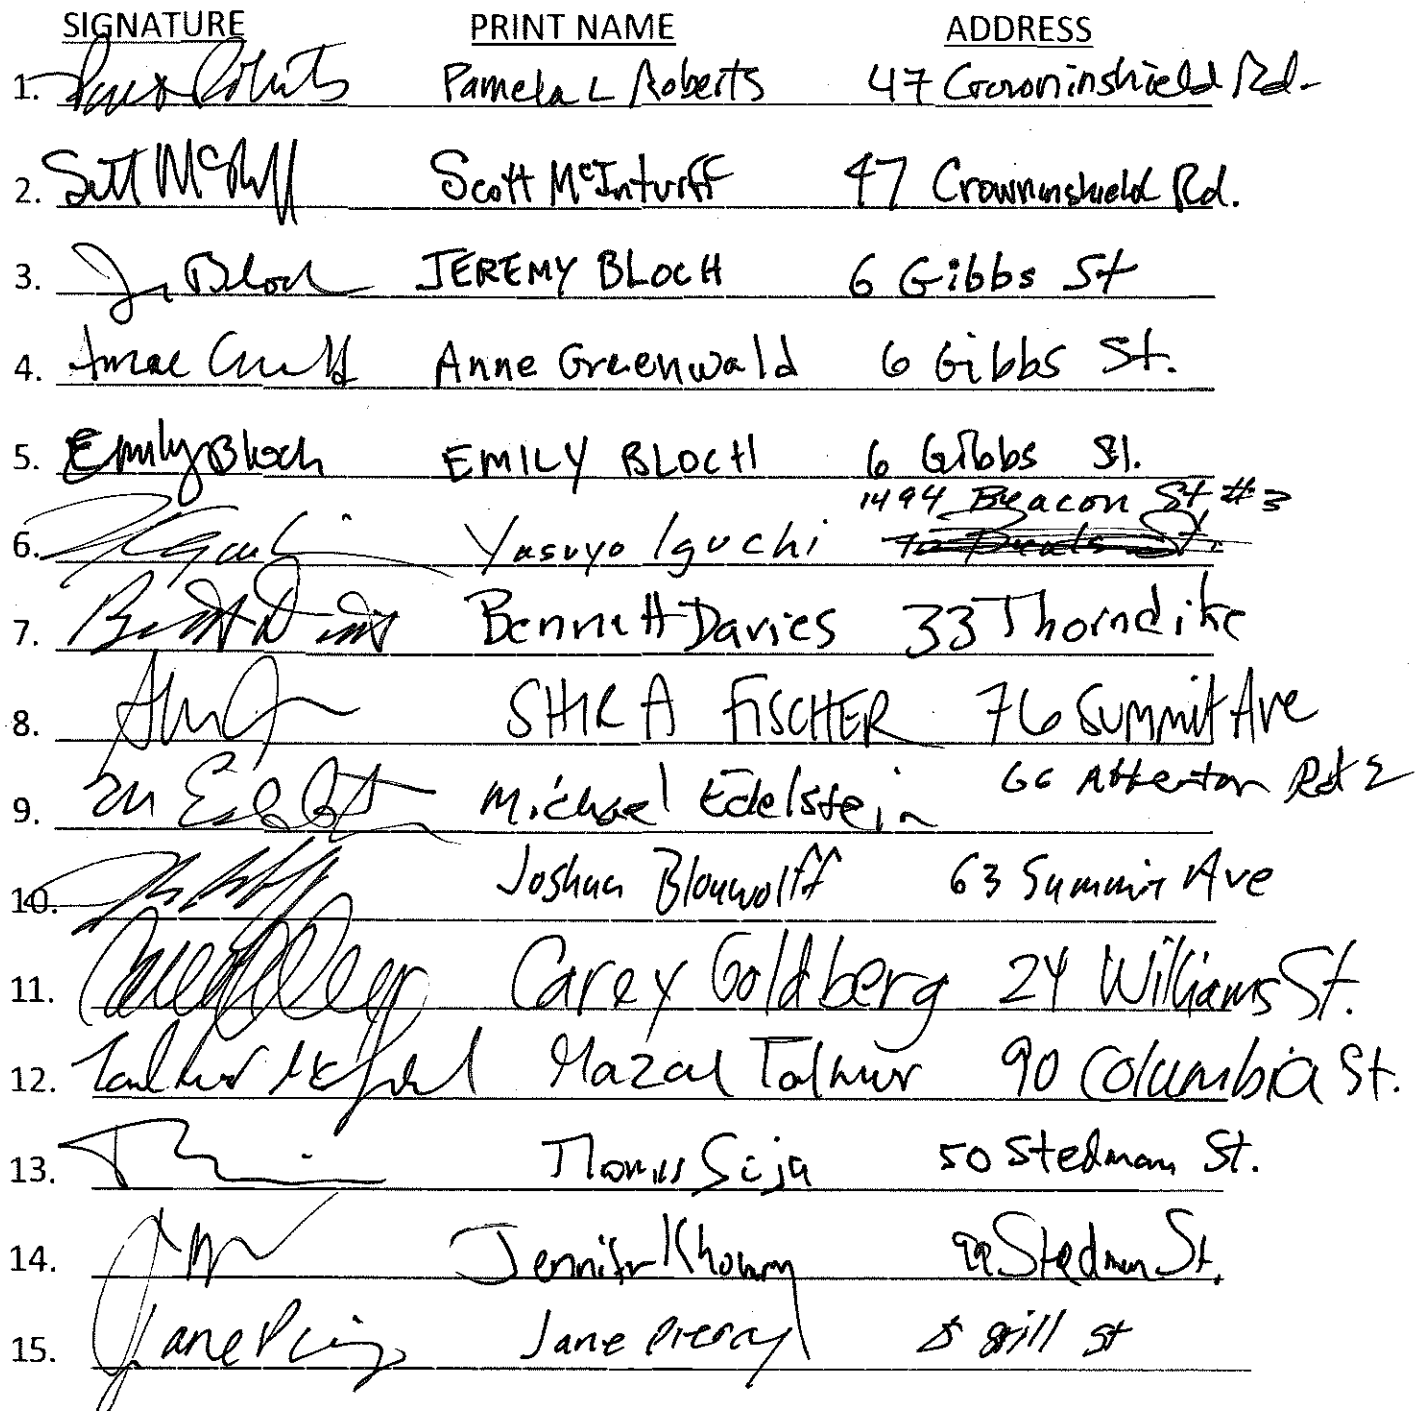 SIGNATURE PRINT NAME ADDRESS
1. Pamela L Roberts 47 Crowninshield Rd.
2. Scott McInturff 47 Crowninshield Rd.
3. J Bloch JEREMY BLOCH 6 Gibbs St
4. Anne Greenwald 6 Gibbs St.
5. Emily Bloch EMILY BLOCH 6 Gibbs St.
1494 Beacon St #3
6. Yasuyo Iguchi
7. Bennett Davies 33 Thorndike
8. SHIRA FISCHER 76 Summit Ave
9. Michael Edelstein 66 Atherton Rd 2
10. Joshua Blouwolff 63 Summit Ave
11. Carey Goldberg 24 Williams St.
12. Mazal Talmur 90 Columbia St.
13. Thomas 50 Stedman St.
14. Jennifer Khoury 99 Stedman St.
15. Jane Piercy Jane Piercy St